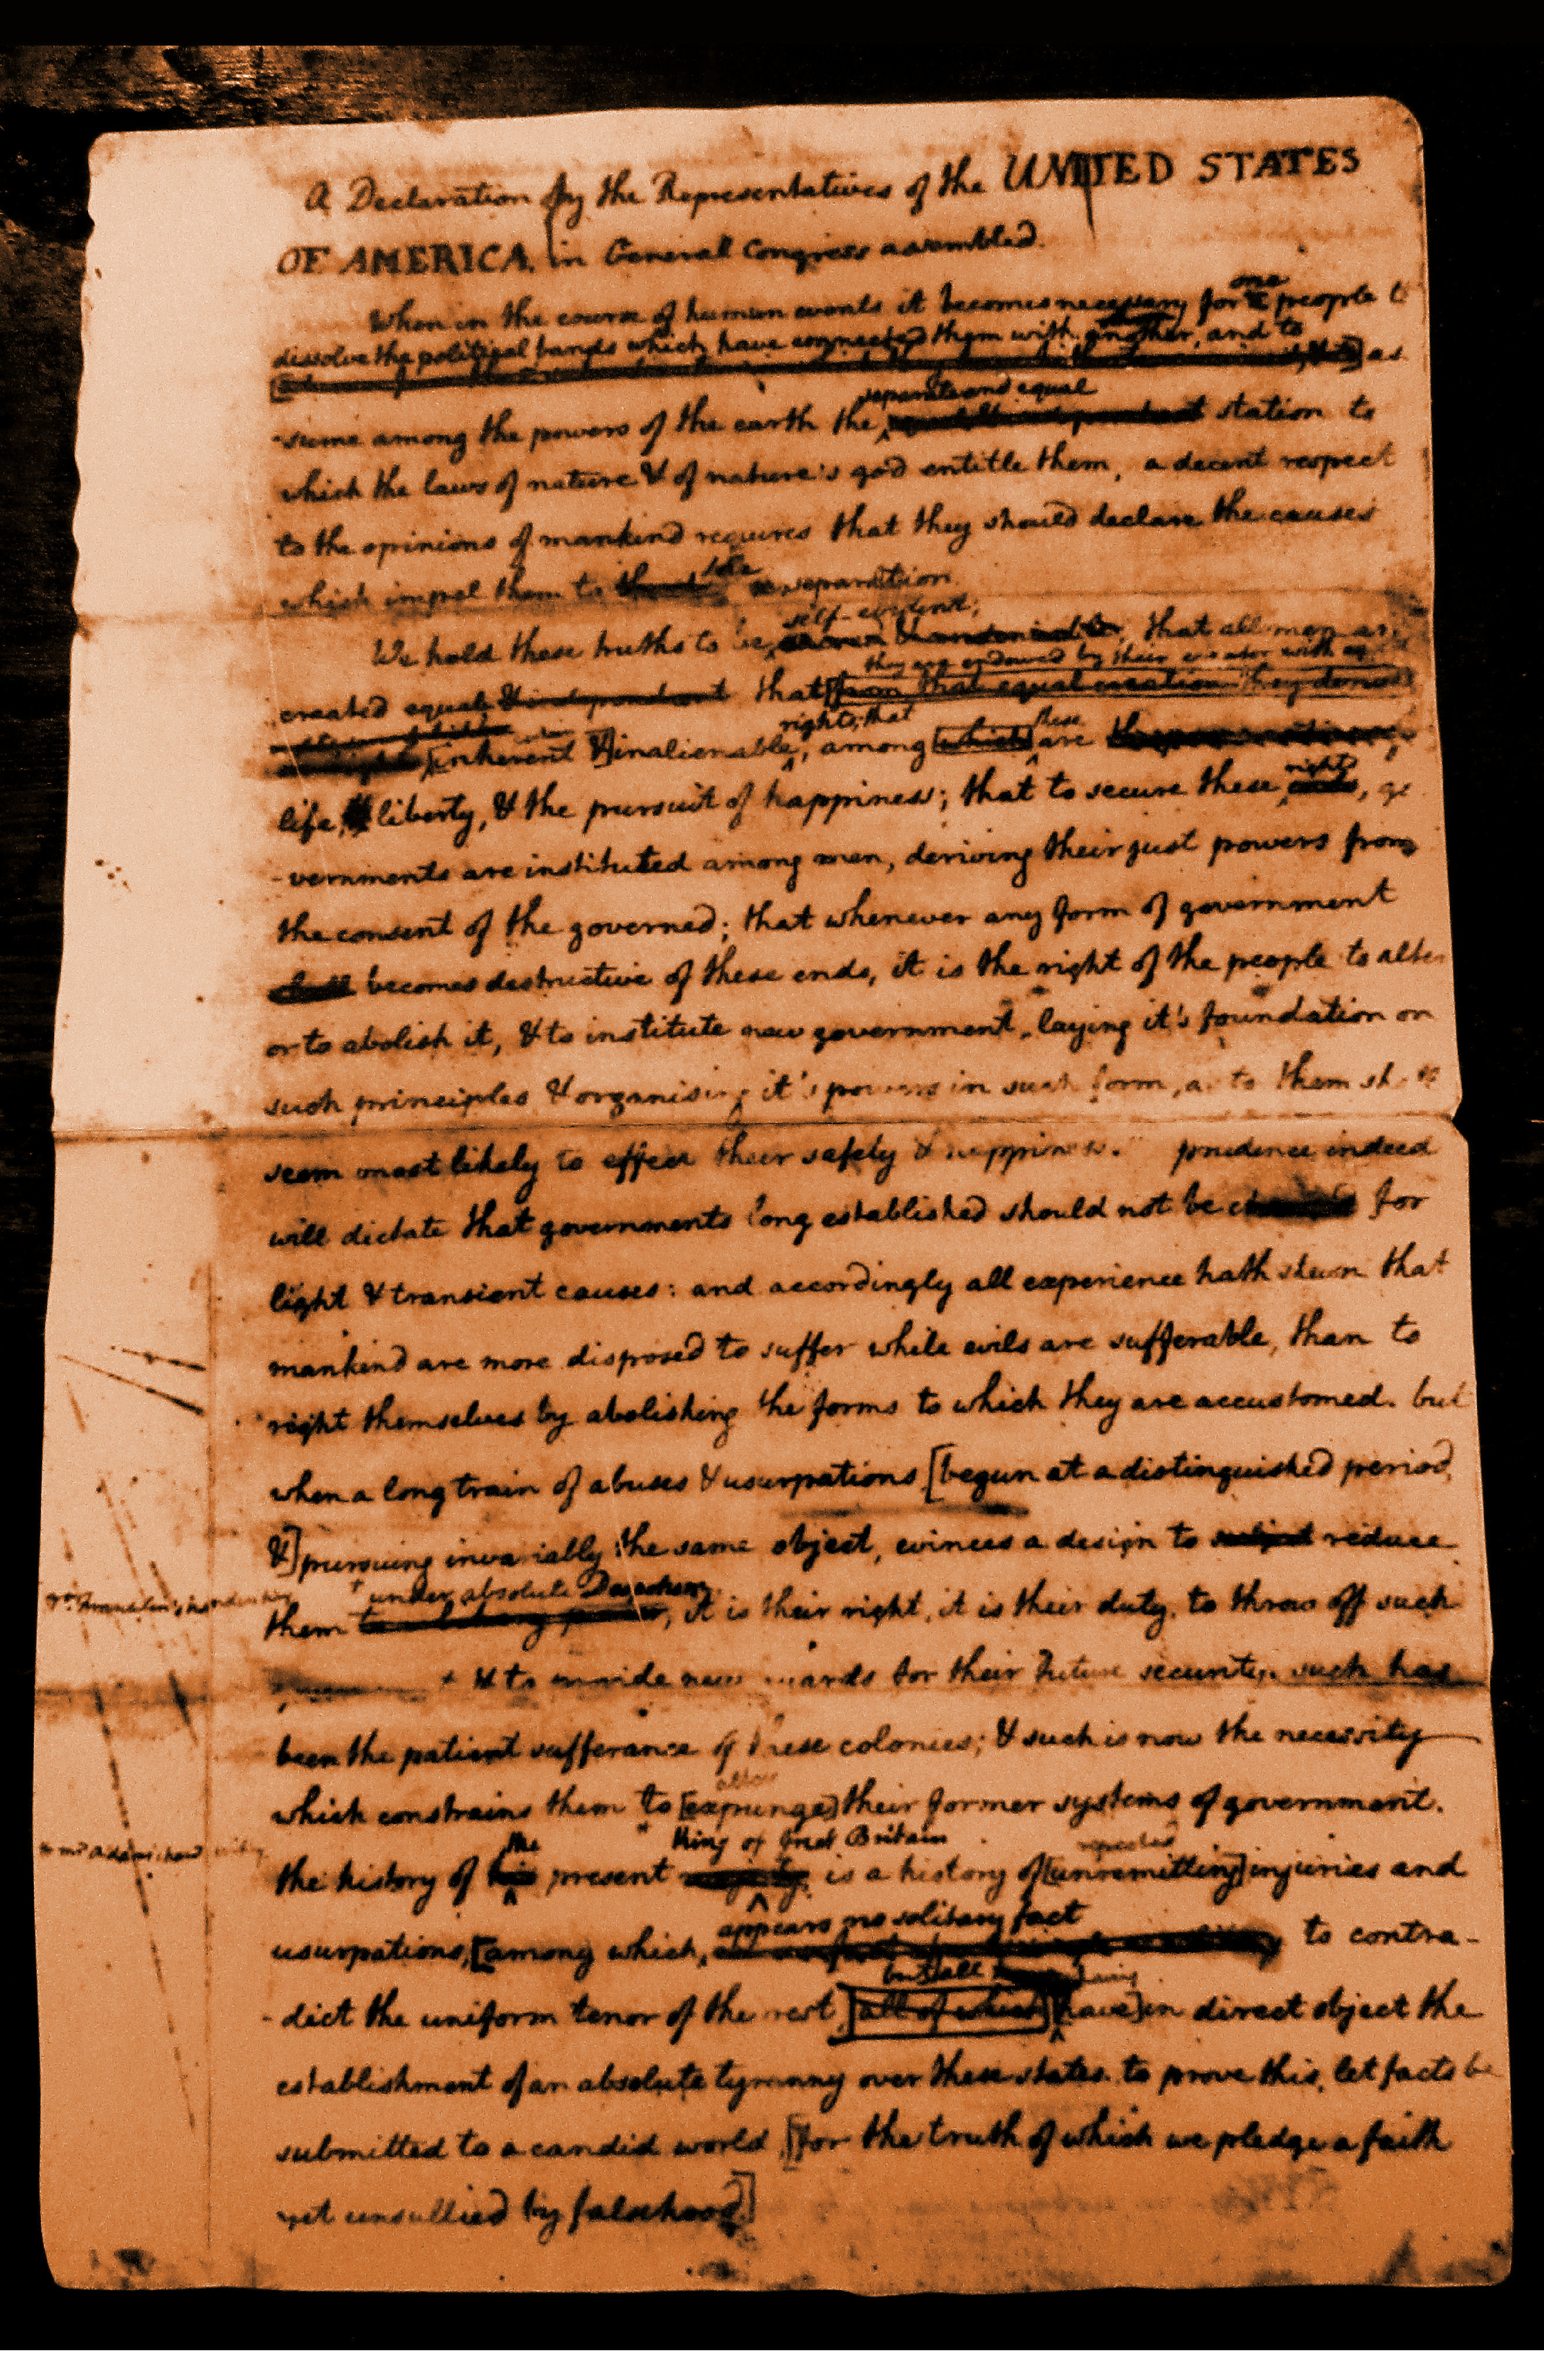 A Declaration by the Representatives of the UNITED STATES
OF AMERICA, in General Congress assembled.
one
When in the course of human events it becomes necessary for a people to
dissolve the political bands which have connected them with another, and to
as
separate and equal
-sume among the powers of the earth the station to
which the laws of nature & of nature's god entitle them, a decent respect
to the opinions of mankind requires that they should declare the causes
the
which impel them to the separation.
self-evident;
We hold these truths to be that all men are
they are endowed by their creator with
created equal & independent that [from that equal creation they derive
rights; that these
[inherent &] inalienable, among [which] are
rights
life, & liberty, & the pursuit of happiness; that to secure these ends, go
-vernments are instituted among men, deriving their just powers from
the consent of the governed; that whenever any form of government
shall becomes destructive of these ends, it is the right of the people to alter
or to abolish it, & to institute new government, laying it's foundation on
such principles & organising it's powers in such form, as to them shall
seem most likely to effect their safety & happiness. prudence indeed
will dictate that governments long established should not be changed for
light & transient causes: and accordingly all experience hath shewn that
mankind are more disposed to suffer while evils are sufferable, than to
right themselves by abolishing the forms to which they are accustomed. but
when a long train of abuses & usurpations, [begun at a distinguished period,
&] pursuing invariably the same object, evinces a design to subject reduce
Dr. Franklin's handwriting
under absolute Despotism
them to arbitrary power, it is their right, it is their duty, to throw off such
& to provide new guards for their future security. such has
been the patient sufferance of these colonies; & such is now the necessity
alter
which constrains them to [expunge] their former systems of government.
mr Adams' hand writing
the king of Great Britain repeated
the history of his present majesty, is a history of [unremitting] injuries and
appears no solitary fact
usurpations, [among which, to contra-
but all having
-dict the uniform tenor of the rest, [all of which] [have] in direct object the
establishment of an absolute tyranny over these states. to prove this, let facts be
submitted to a candid world, [for the truth of which we pledge a faith
yet unsullied by falsehood.]